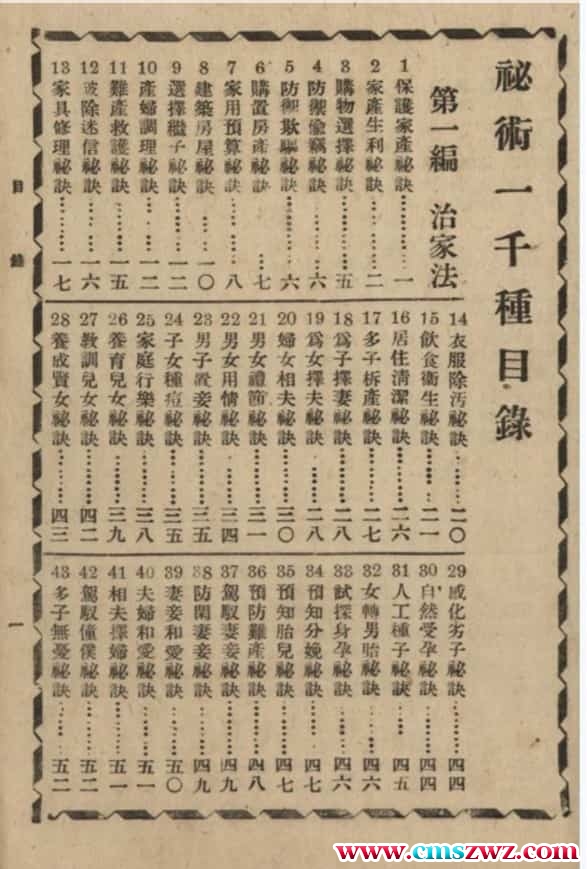 祕術一千種目錄
第一編 治家法
1 保護家產祕訣………一
2 家產生利祕訣………二
3 購物選擇祕訣………五
4 防禦偸竊祕訣………六
5 防御欺騙祕訣………六
6 購置房產祕訣………七
7 家用預算祕訣………八
8 建築房屋祕訣………一〇
9 選擇繼子祕訣………一二
10 產婦調理祕訣………一二
11 難產救護祕訣………一五
12 破除迷信祕訣………一六
13 家具修理祕訣………一七
14 衣服除汚祕訣………二〇
15 飮食衞生祕訣………二一
16 居住淸潔祕訣………二六
17 多子析產祕訣………二七
18 爲子擇妻祕訣………二八
19 爲女擇夫祕訣………二八
20 婦女相夫祕訣………三〇
21 男女禮節祕訣………三一
22 男女用情祕訣………三四
23 男子置妾祕訣………三五
24 子女種痘祕訣………三五
25 家庭行樂祕訣………三八
26 養育兒女祕訣………三九
27 教訓兒女祕訣………四二
28 養成賢女祕訣………四三
29 感化劣子祕訣………四四
30 自然受孕祕訣………四四
31 人工種子祕訣………四五
32 女轉男胎祕訣………四六
33 試探身孕祕訣………四六
34 預知分娩祕訣………四七
35 預知胎兒祕訣………四七
36 預防難產祕訣………四八
37 駕馭妻妾祕訣………四九
38 防閑妻妾祕訣………四九
39 妻妾和愛祕訣………五〇
40 夫婦和愛祕訣………五一
41 相夫擇婦祕訣………五一
42 駕馭僮僕祕訣………五二
43 多子無憂祕訣………五二
目錄
一
www.cmszwz.com